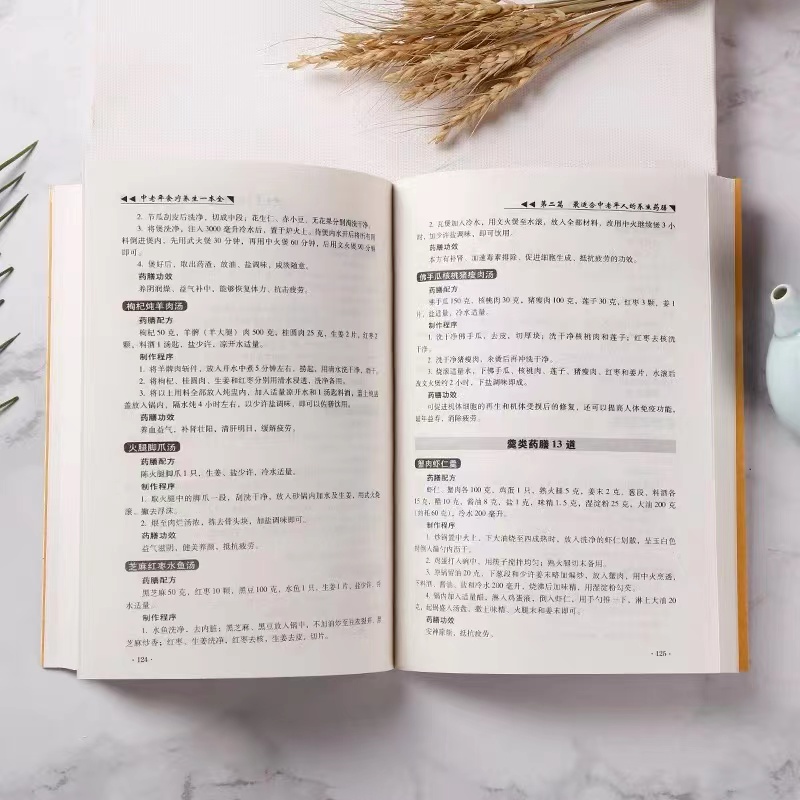 中老年食疗养生一本全
2. 节瓜刮皮后洗净，切成中段；花生仁、赤小豆、无花果分别清洗干净。
3. 将煲洗净，注入 3000 毫升冷水后，置于炉火上。待煲内水开后将所有用
料倒进煲内，先用武火煲 30 分钟，再用中火煲 60 分钟，后用文火煲 90 分钟
即可。
4. 煲好后，取出药渣，放油、盐调味，咸淡随意。
药膳功效
养阴润燥、益气补中，能够恢复体力、抗击疲劳。
枸杞炖羊肉汤
药膳配方
枸杞 50 克，羊髀（羊大腿）肉 500 克，桂圆肉 25 克，生姜 2 片，红枣 2
颗，料酒 1 汤匙，盐少许，凉开水适量。
制作程序
1. 将羊髀肉斩件，放入开水中煮 5 分钟左右，捞起，用清水洗干净。
2. 将枸杞、桂圆肉、生姜和红枣分别用清水浸透，洗净备用。
3. 将以上用料全部放入炖盅内，加入适量凉开水和 1 汤匙料酒，盖上炖盅
盖放入锅内，隔水炖 4 小时左右，以少许盐调味，即可以佐膳饮用。
药膳功效
养血益气、补肾壮阳，清肝明目，缓解疲劳。
火腿脚爪汤
药膳配方
陈火腿脚爪 1 只，生姜、盐少许，冷水适量。
制作程序
1. 取火腿中的脚爪一段，刮洗干净，放入砂锅内加水及生姜，用武火烧
滚，撇去浮沫。
2. 煨至肉烂汤浓，拣去骨头块，加盐调味即可。
药膳功效
益气滋阴，健美养颜，抵抗疲劳。
芝麻红枣水鱼汤
药膳配方
黑芝麻 50 克，红枣 10 颗，黑豆 100 克，水鱼 1 只，生姜 1 片，盐少许，冷
水适量。
制作程序
1. 水鱼洗净，去内脏；黑芝麻、黑豆放入锅中，不加油炒至豆衣裂开，黑
芝麻炒香；红枣、生姜洗净，红枣去核，生姜去皮，切片。
· 124 ·
第二篇 最适合中老年人的养生药膳
2. 瓦煲加入冷水，用文火煲至水滚，放入全部材料，改用中火继续煲 3 小
时，加少许盐调味，即可饮用。
药膳功效
本方有补肾、加速毒素排除、促进细胞生成、抵抗疲劳的功效。
佛手瓜核桃猪瘦肉汤
药膳配方
佛手瓜 150 克，核桃肉 30 克，猪瘦肉 100 克，莲子 30 克，红枣 3 颗，姜 1
片，盐适量，冷水适量。
制作程序
1. 洗干净佛手瓜，去皮，切厚块；洗干净核桃肉和莲子；红枣去核洗
干净。
2. 洗干净猪瘦肉，汆烫后再冲洗干净。
3. 烧滚适量水，下佛手瓜、核桃肉、莲子、猪瘦肉、红枣和姜片，水滚后
改文火煲约 2 小时，下盐调味即成。
药膳功效
可促进机体细胞的再生和机体受损后的修复，还可以提高人体免疫功能，
延年益寿，消除疲劳。
羹类药膳 13 道
蟹肉虾仁羹
药膳配方
虾仁、蟹肉各 100 克，鸡蛋 1 只，熟火腿 5 克，姜末 2 克，葱段、料酒各
15 克，醋 10 克，酱油 8 克，盐 1 克，味精 1.5 克，湿淀粉 25 克，大油 200 克
（约耗 60 克），冷水 200 毫升。
制作程序
1. 炒锅置中火上，下大油烧至四成热时，放入洗净的虾仁划散，呈玉白色
时倒入漏勺内沥干。
2. 鸡蛋打入碗中，用筷子搅拌均匀；熟火腿切末备用。
3. 原锅留油 20 克，下葱段和少许姜末略加煸炒，放入蟹肉，用中火烹透，
下料酒、酱油、盐和冷水 200 毫升，烧沸后加味精，用湿淀粉勾芡。
4. 锅内加入适量醋，淋入鸡蛋液，倒入虾仁，用手勺推一下，淋上大油 20
克，起锅盛入汤盘，撒上味精、火腿末和姜末即可。
药膳功效
安神除烦，抵抗疲劳。
· 125 ·